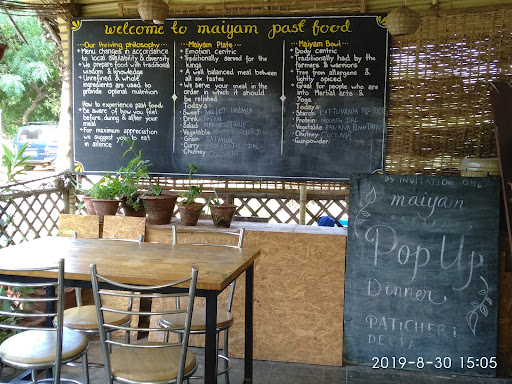 welcome to maiyam past food
Our thriving philosophy
Menu changes in accordance
to local availability & diversity
We prepare food with traditional
wisdom & knowledge
Unrefined & whole
ingredients are used to
provide optimal nutrition
How to experience past food?
Be aware of how you feel
before, during & after your
meal
For maximum appreciation
we suggest you to eat
in silence
Maiyam Plate
Emotion centric
Traditionally served for the
kings
A well balanced meal between
all six tastes
We serve your meal in the
order in which it should
be relished
Today's
Sweet
Drink
Salad
Vegetable
Grain
Curry
Chutney
Maiyam Bowl
Body centric
Traditionally had by the
farmers & warriors
Free from allergens &
lightly spiced
Great for people who are
into Martial arts &
Yoga
Today's
Starch
Protein
Vegetable BANANA
Chutney
Gunpowder
BY INVITATION ONLY
maiyam
Pop Up
Dinner
PATICHERI
DEEPA
2019-8-30 15:05